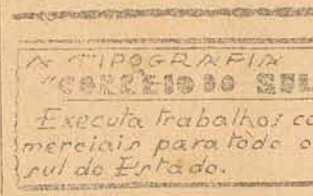 A TIPOGRAFIA
"CORREIO DO SUL
Executa trabalhos co
merciais para todo o
sul do Estado.